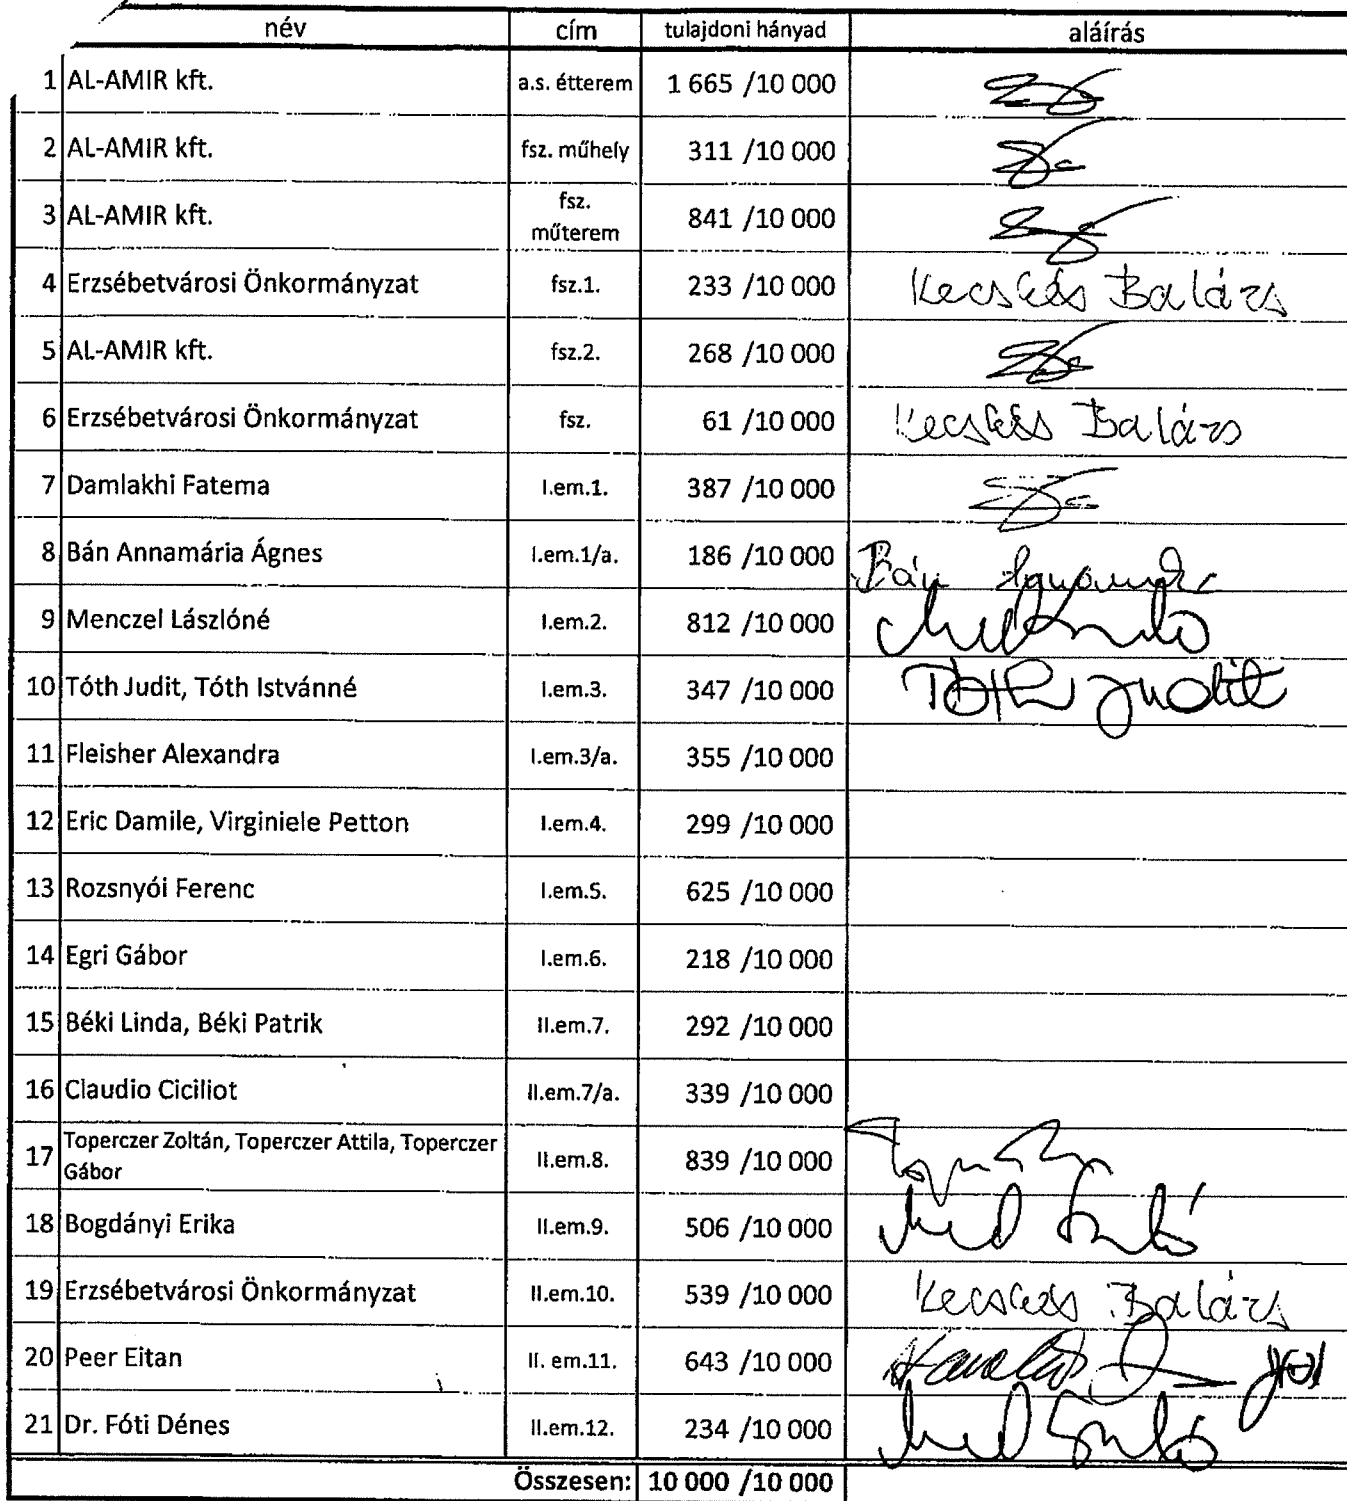 név cím tulajdoni hányad aláírás
1 AL-AMIR kft. a.s. étterem 1 665 /10 000
2 AL-AMIR kft. fsz. műhely 311 /10 000
3 AL-AMIR kft. fsz. műterem 841 /10 000
4 Erzsébetvárosi Önkormányzat fsz.1. 233 /10 000 Kecskés Balázs
5 AL-AMIR kft. fsz.2. 268 /10 000
6 Erzsébetvárosi Önkormányzat fsz. 61 /10 000 Kecskés Balázs
7 Damlakhi Fatema I.em.1. 387 /10 000
8 Bán Annamária Ágnes I.em.1/a. 186 /10 000 Bán
9 Menczel Lászlóné I.em.2. 812 /10 000
10 Tóth Judit, Tóth Istvánné I.em.3. 347 /10 000 Tóth Judit
11 Fleisher Alexandra I.em.3/a. 355 /10 000
12 Eric Damile, Virginiele Petton I.em.4. 299 /10 000
13 Rozsnyói Ferenc I.em.5. 625 /10 000
14 Egri Gábor I.em.6. 218 /10 000
15 Béki Linda, Béki Patrik II.em.7. 292 /10 000
16 Claudio Ciciliot II.em.7/a. 339 /10 000
17 Toperczer Zoltán, Toperczer Attila, Toperczer
Gábor II.em.8. 839 /10 000
18 Bogdányi Erika II.em.9. 506 /10 000
19 Erzsébetvárosi Önkormányzat II.em.10. 539 /10 000 Kecskés Balázs
20 Peer Eitan II. em.11. 643 /10 000
21 Dr. Fóti Dénes II.em.12. 234 /10 000
Összesen: 10 000 /10 000